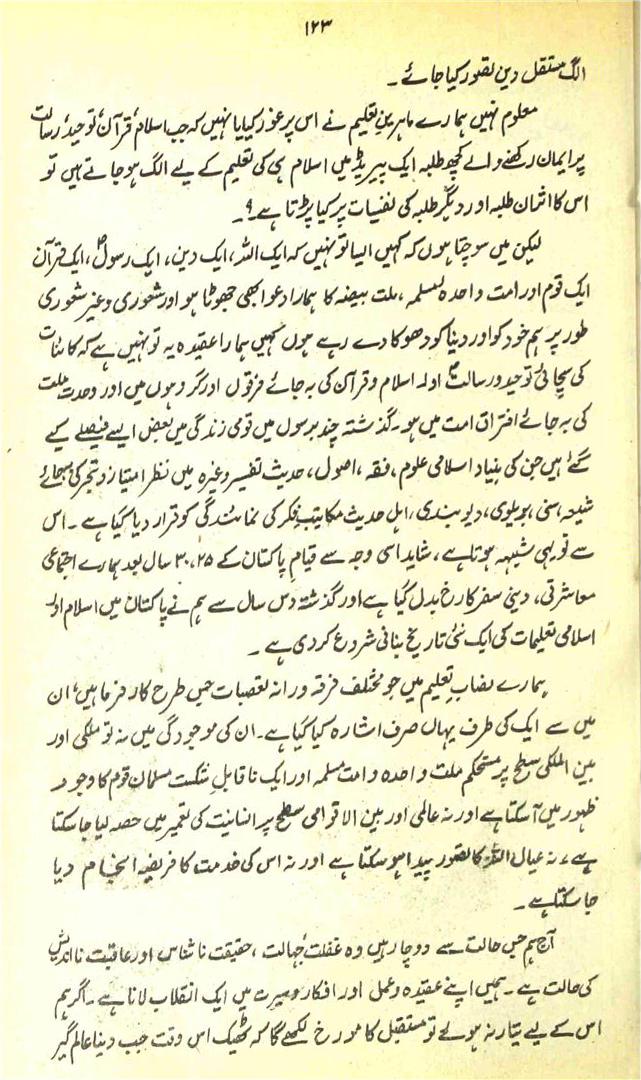 ۱۲۳
الگ مستقل دین تصور کیا جائے ۔
معلوم نہیں ہمارے ماہرین تعلیم نے اس پر غور کیا یا نہیں کہ جب اسلام، قرآن، توحید، رسالت
پر ایمان رکھنے والے کچھ طلبہ ایک پیریڈ میں اسلام ہی کی تعلیم کے لیے الگ ہو جاتے ہیں تو
اس کا اثر ان طلبہ اور دیگر طلبہ کی نفسیات پر کیا پڑتا ہے ؟۔
لیکن میں سوچتا ہوں کہ کہیں ایسا تو نہیں کہ ایک اللہ، ایک دین، ایک رسولؐ، ایک قرآن
ایک قوم اور امت واحدہ مسلمہ، ملت بیضہ کا ہمارا دعوا بھی جھوٹا ہو اور شعوری و غیر شعوری
طور پر ہم خود کو اور دنیا کو دھوکا دے رہے ہوں کہیں ہمارا عقیدہ یہ تو نہیں ہے کہ کائنات
کی سچائی توحید و رسالت اور اسلام و قرآن کی بہ جائے فرقوں اور گروہوں میں اور وحدت ملت
کی بہ جائے افتراق امت میں ہو۔ گذشتہ چند برسوں میں قومی زندگی میں بعض ایسے فیصلے کیے
گئے ہیں جن کی بنیاد اسلامی علوم، فقہ، اصول، حدیث تفسیر وغیرہ میں نظر امتیاز و تبحر کی بجائے
شیعہ، سنی، بریلوی، دیوبندی، اہل حدیث مکاتیب فکر کی نمائندگی کو قرار دیا گیا ہے ۔ اس
سے تو یہی شبہہ ہوتا ہے، شاید اسی وجہ سے قیام پاکستان کے ۲۵، ۳۰ سال بعد ہمارے اجتماعی
معاشرتی، دینی سفر کا رخ بدل گیا ہے اور گذشتہ دس سال سے ہم نے پاکستان میں اسلام اور
اسلامی تعلیمات کی ایک نئی تاریخ بنانی شروع کر دی ہے ۔
ہمارے نصاب تعلیم میں جو مختلف فرقہ ورانہ تعصبات جس طرح کار فرما ہیں، ان
میں سے ایک کی طرف یہاں صرف اشارہ کیا گیا ہے۔ ان کی موجودگی میں نہ تو ملکی اور
بین الملکی سطح پر مستحکم ملت واحدہ و امت مسلمہ اور ایک ناقابل شکست مسلمان قوم کا وجود
ظہور میں آسکتا ہے اور نہ عالمی اور بین الاقوامی سطح پر انسانیت کی تعمیر میں حصہ لیا جا سکتا
ہے، نہ عیال اللہ کا تصور پیدا ہو سکتا ہے اور نہ اس کی خدمت کا فریضہ انجام دیا
جا سکتا ہے ۔
آج ہم جس حالت سے دوچار ہیں وہ غفلت، جہالت، حقیقت ناشناس اور عاقبت نااندیش
کی حالت ہے ۔ ہمیں اپنے عقیدہ و عمل اور افکار و سیرت میں ایک انقلاب لانا ہے ۔ اگر ہم
اس کے لیے تیار نہ ہوئے تو مستقبل کا مورخ لکھے گا کہ ٹھیک اس وقت جب دنیا عالم گیر